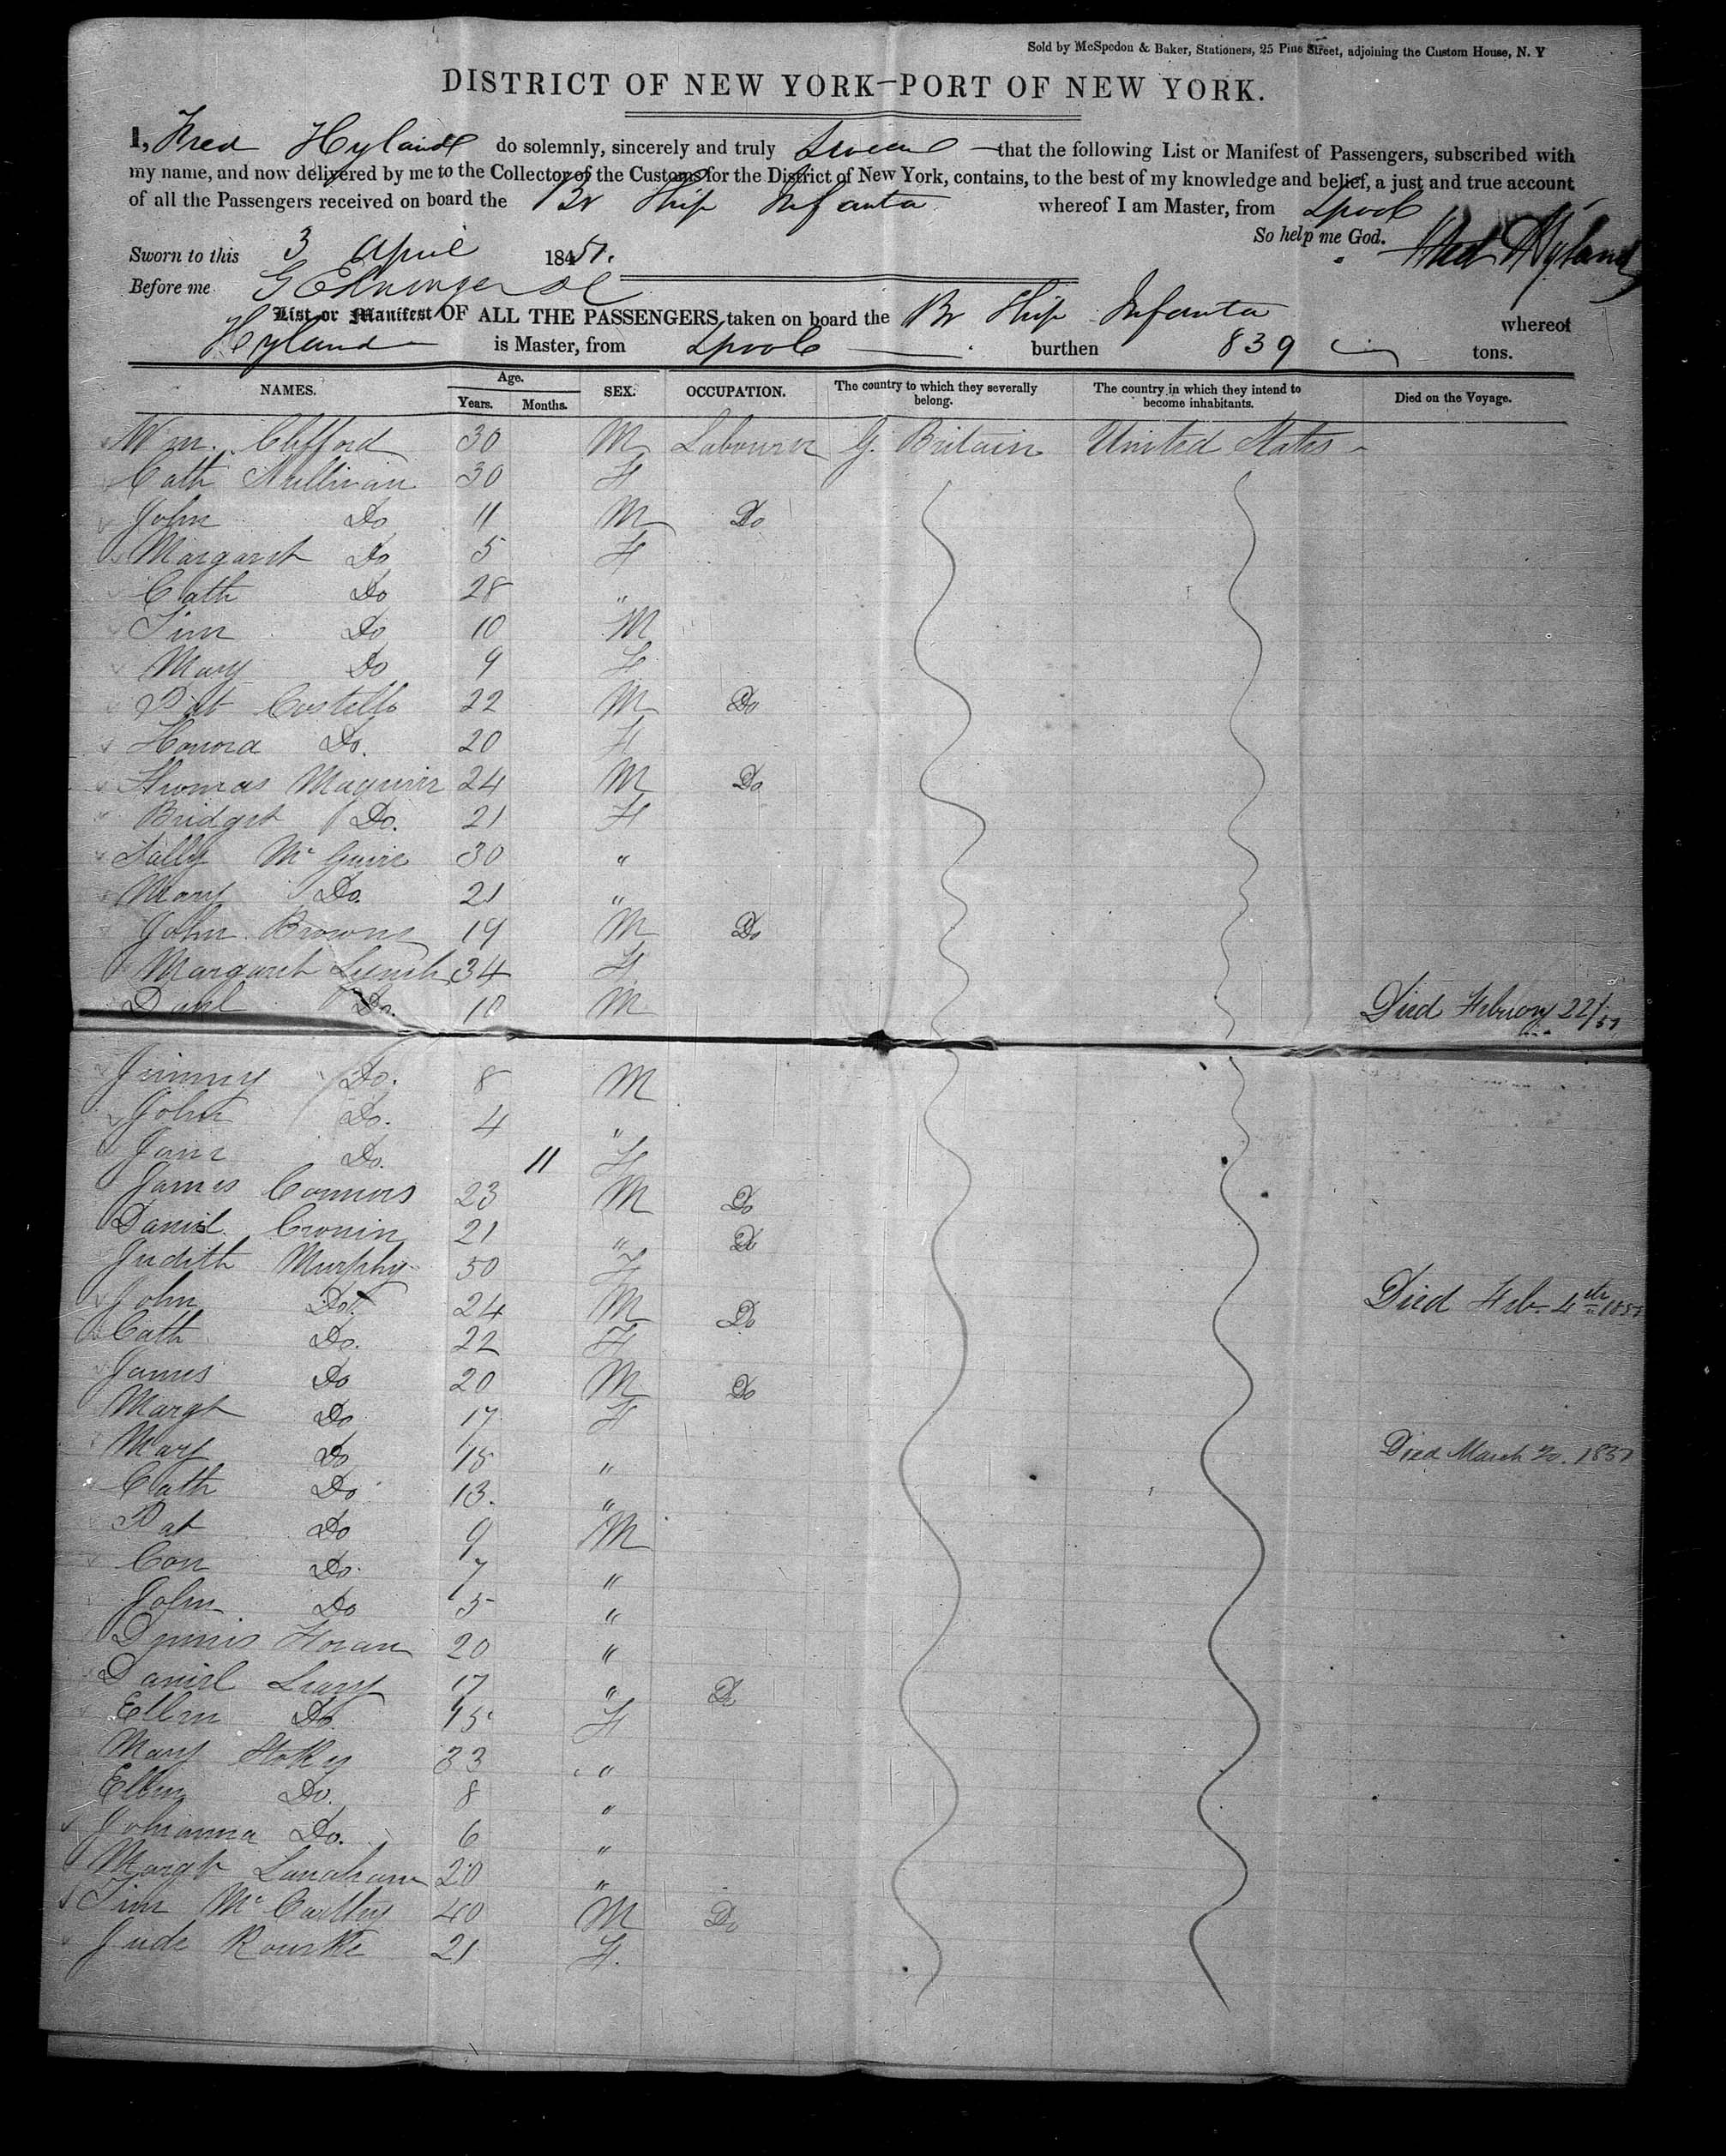 Sold by McSpedon & Baker, Stationers, 25 Pine Street, adjoining the Custom House, N. Y
DISTRICT OF NEW YORK—PORT OF NEW YORK.
I, Fred Hyland do solemnly, sincerely and truly Swear that the following List or Manifest of Passengers, subscribed with
my name, and now delivered by me to the Collector of the Customs for the District of New York, contains, to the best of my knowledge and belief, a just and true account
of all the Passengers received on board the Br Ship Infanta whereof I am Master, from Lpool
So help me God. Fred Hyland
Sworn to this 3 April 1851.
Before me
List or Manifest OF ALL THE PASSENGERS taken on board the Br Ship Infanta whereof
Hyland is Master, from Lpool burthen 839 tons.
NAMES. Age. Years. Months. SEX. OCCUPATION. The country to which they severally belong. The country in which they intend to become inhabitants. Died on the Voyage.
Wm. Clifford 30 M Labourer G. Britain United States
Cath Sullivan 30 F
John Do 11 M Do
Margaret Do 5 F
Cath Do 28 "
Tim Do 10 M
Mary Do 9 F
Pat Costello 22 M Do
Honora Do. 20 F
Thomas Maguire 24 M Do
Bridget Do. 21 F
Sally McGuire 30 "
Mary Do. 21 "
John Browne 19 M Do
Margaret Lynch 34 F
Danl Do. 10 M Died February 22/51
Jimmy Do. 8 M
John Do. 4 "
Jane Do. 11 F
James Connors 23 M Do
Daniel Cronin 21 " Do
Judith Murphy 50 F
John Do. 24 M Do Died Feb. 4th 1851
Cath Do. 22 F
James Do 20 M Do
Margt Do 17 F
Mary Do 15 " Died March 20. 1851
Cath Do 13. "
Pat Do 9 M
Con Do. 7 "
John Do 5 "
Dennis Horan 20 "
Daniel Leary 17 " Do
Ellen Do. 15 F
Mary Stokes 33 "
Ellen Do. 8 "
Johanna Do. 6 "
Margt Lanahan 20 "
Tim McCarthy 40 M Do
Jude Rourke 21 F.